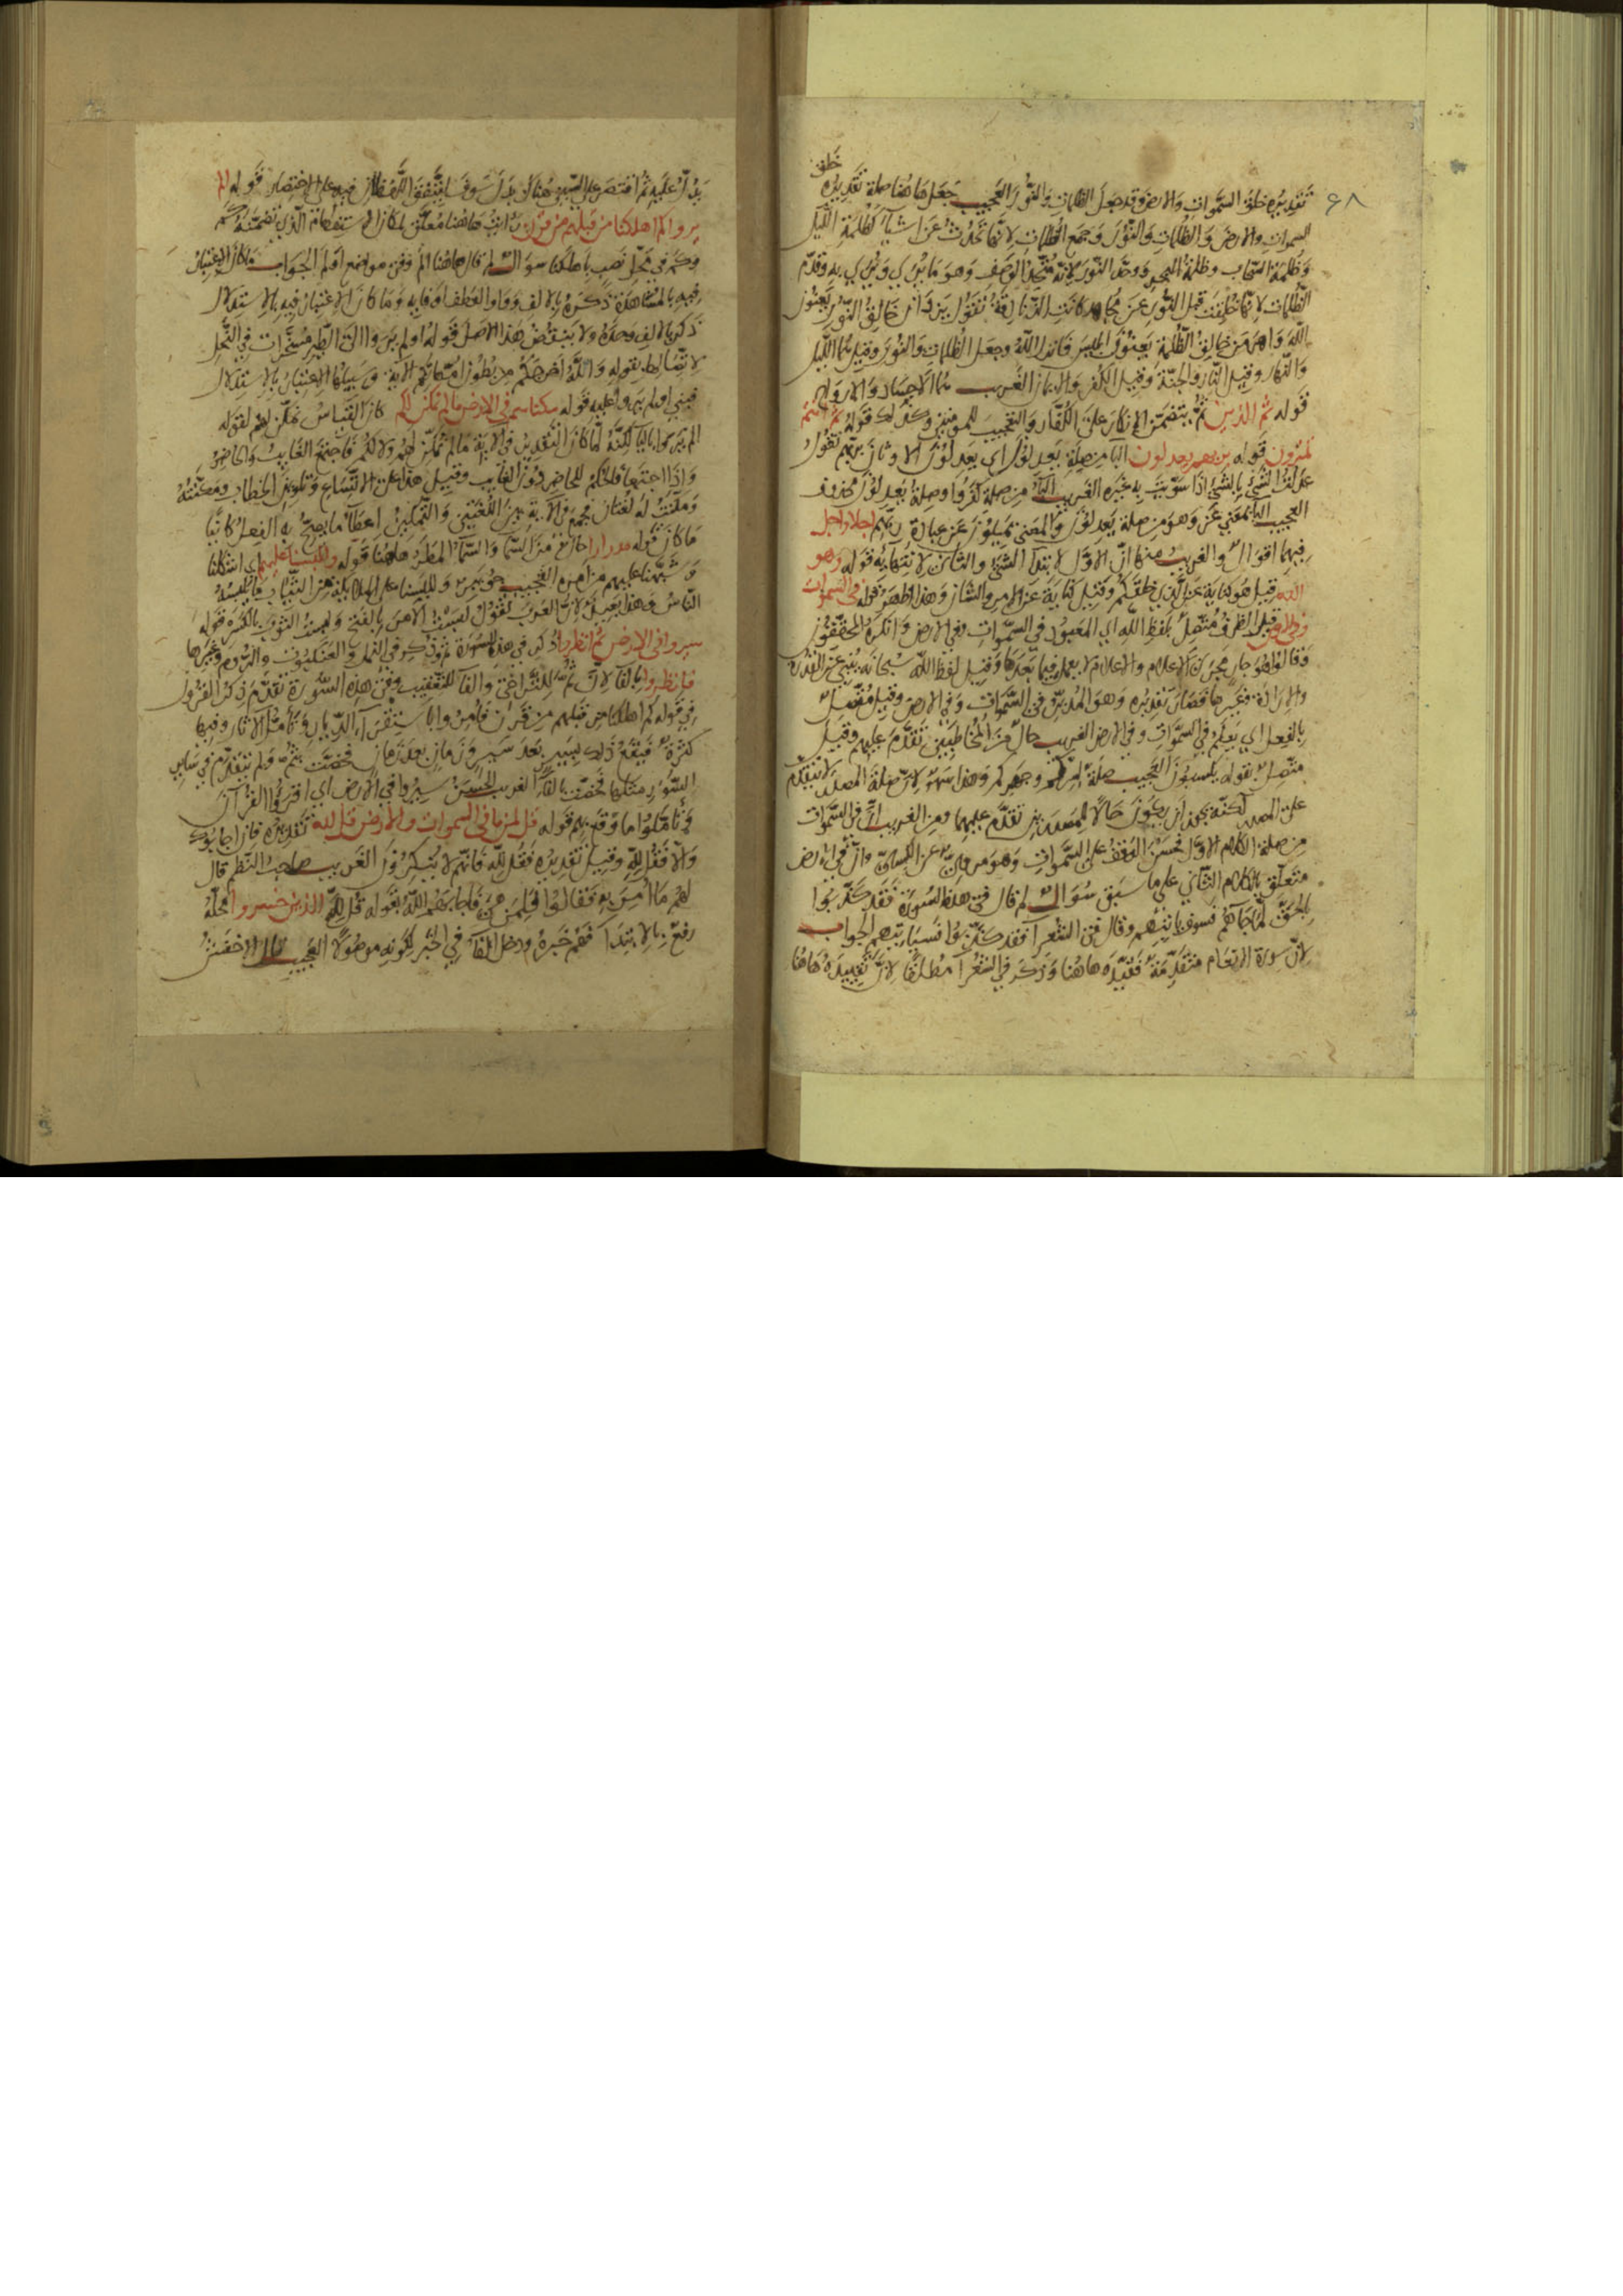 خلق
٦٨
تقديره خلق السموات والارض وقد جعل الظلمات والنور العجيب جعل هاهنا صلة تقديره
السموات والارض والظلمات والنور وجمع الظلمات لانها تحدث عن اشيآء كظلمة الليل
وظلمة السحاب وظلمة البحر ووحد النور لانه متحد الوصف وهو ما يُرى ويُرى به وقدم
الظلمات لانها خلقت قبل النور عن مجاهد كانت الزنادقة تقول يزدان خالق النور يعنون
الله واهرمن خالق الظلمة يعنون ابليس فانزل الله وجعل الظلمات والنور وقيل هما الليل
والنهار وقيل النار والجنة وقيل الكفر والايمان الغريب هما الاجساد والارواح
قوله ثم الذين ثم يتضمن الانكار على الكفار والتعجيب للمومنين وكذلك قوله ثم انتم
تمترون قوله بربهم يعدلون البا من صلة يعدلون اي يعدلون الاوثان بربهم تقول
عدلت الشي بالشي اذا سويت به غيره الغريب البآء من صلة كفروا وصلة يعدلون محذوف
العجيب البا بمعني عن وهو من صلة يعدلون والمعنى يميلون عن عبادة ربهم اجلا واجل
فيهما اقوال والغريب منها ان الاول لابتدآ الشي والثاني لانتهايه قوله وهو
الله قيل هو كناية عن الذي خلقكم وقيل كناية عن الامر والشان وهذا اظهر قوله في السموات
وفي الارض قيل الظرف متصل بلفظ الله اي المعبود في السموات وفي الارض وانكره المحققون
وقالوا هو جار مجرى الاعلام والاعلام لا يعمل فيما بعدها وقيل لفظ الله سبحانه ينبي عن القدرة
والارادة وغيرها فصار تقديره وهو المدبر في السموات وفي الارض وقيل متصل
بالفعل اي يعلم في السموات وفي الارض الغريب حال من المخاطبين تقدم عليهم وقيل
متصل بقوله يكسبون العجيب صلة لسركم وجهركم وهذا سهو لان صلة المصدر لا تتقدم
على المصدر لكنه يجوز ان يكون حالا للمصدرين تقدم عليهما ومن الغريب ان في السموات
من صلة الكلام الاول فحسن الوقف على السموات وهو مروي عن الكسائي وان في الارض
متعلق بالكلام الثاني على ما سبق سوال لم قال في هذه السورة فقد كذبوا
بالحق لما جآهم فسوف ياتيهم وقال في الشعرآ فقد كذبوا فسياتيهم الجواب
لان سورة الانعام متقدمة فقيده هاهنا وذكر في الشعرآ مطلقا لان تقييده هاهنا
يدل عليه ثم اقتصر على السين هناك بدل سوف ليتفق اللفظان فيه على الاختصار قوله الم
يروا كم اهلكنا من قبلهم من قرن رايت هاهنا معلق لمكان الاستفهام الذي تضمنه كم
وكم في محل نصب باهلكنا سوال لم قال هاهنا الم وفي مواضع اولم الجواب ما كان الاعتبار
فيه بالمشاهدة ذكره بالالف وواو العطف او فايه وما كان الاعتبار فيه بالاستدلال
ذكر بالالف وحده ولا ينتقض هذا الاصل قوله اولم يروا الى الطير مسخرات في النحل
لاتصاله بقوله والله اخرجكم من بطون امهاتكم الاية وسبيلها الاعتبار بالاستدلال
فبني اولم يروا عليه قوله مكناهم في الارض مالم نمكن لكم كان القياس نمكن لهم لقوله
الم يروا باليآ لكنه لما كان التقدير في الاية مالم نمكن لهم ولا لكم فاجتمع الغايب والحاضر
واذا اجتمعا فالحكم للحاضر دون الغايب وقيل هذا على الاتساع وتلوين الخطاب ومكنته
ومكنت له لغتان فجمع في الاية بين اللغتين والتمكين اعطآء ما يصح به الفعل كاينا
ما كان قوله مدرارا حال من السمآ والسمآ المطر هاهنا قوله وللبسنا عليهم اي اشكلنا
وشبهنا عليهم من امرهم العجيب وللبسنا على الملايكة من الثياب ما يلبسه
الناس وهذا بعيد لان العرب تقول لبست الامر بالفتح ولبست الثوب بالكسر قوله
سيروا في الارض ثم انظروا ذكر في هذه السورة ثم وذكر في النمل والعنكبوت والروم وغيرها
فانظروا بالفآ لان ثم للتراخي والفآ للتعقيب وفي هذه السورة تقدم ذكر القرون
في قوله كم اهلكنا من قبلهم من قرن فامروا باستقرآ الديار وتامل الاثار وفيها
كثرة فيقع ذلك بسير بعد سير وزمان بعد زمان فخصت بثم ولم يتقدم في ساير
السور مثلها فخصت بالفآ الغريب الحسن سيروا في الارض اي اقروا القرآن
وتاملوا ما وقع بهم قوله قل لمن ما في السموات والارض قل لله تقديره فان اجابوك
والا فقل لله وقيل تقديره فقل لله فانهم لا ينكرون الغريب صاحب النظم قال
لهم ما امر به فقالوا لمن هي فاجابهم الله بقوله قل لله الذين خسروا محله
رفع بالابتدآ فهم خبره ودخل الفآ في الخبر لكونه موصولا العجيب قال الاخفش